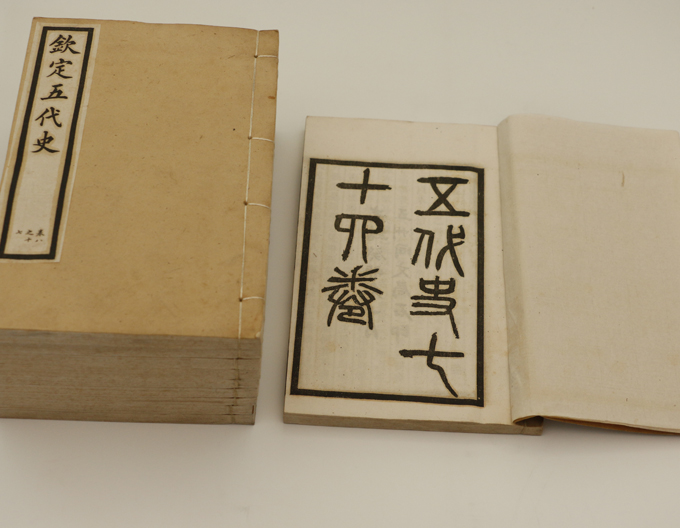 欽定五代史
五代史七
十四卷